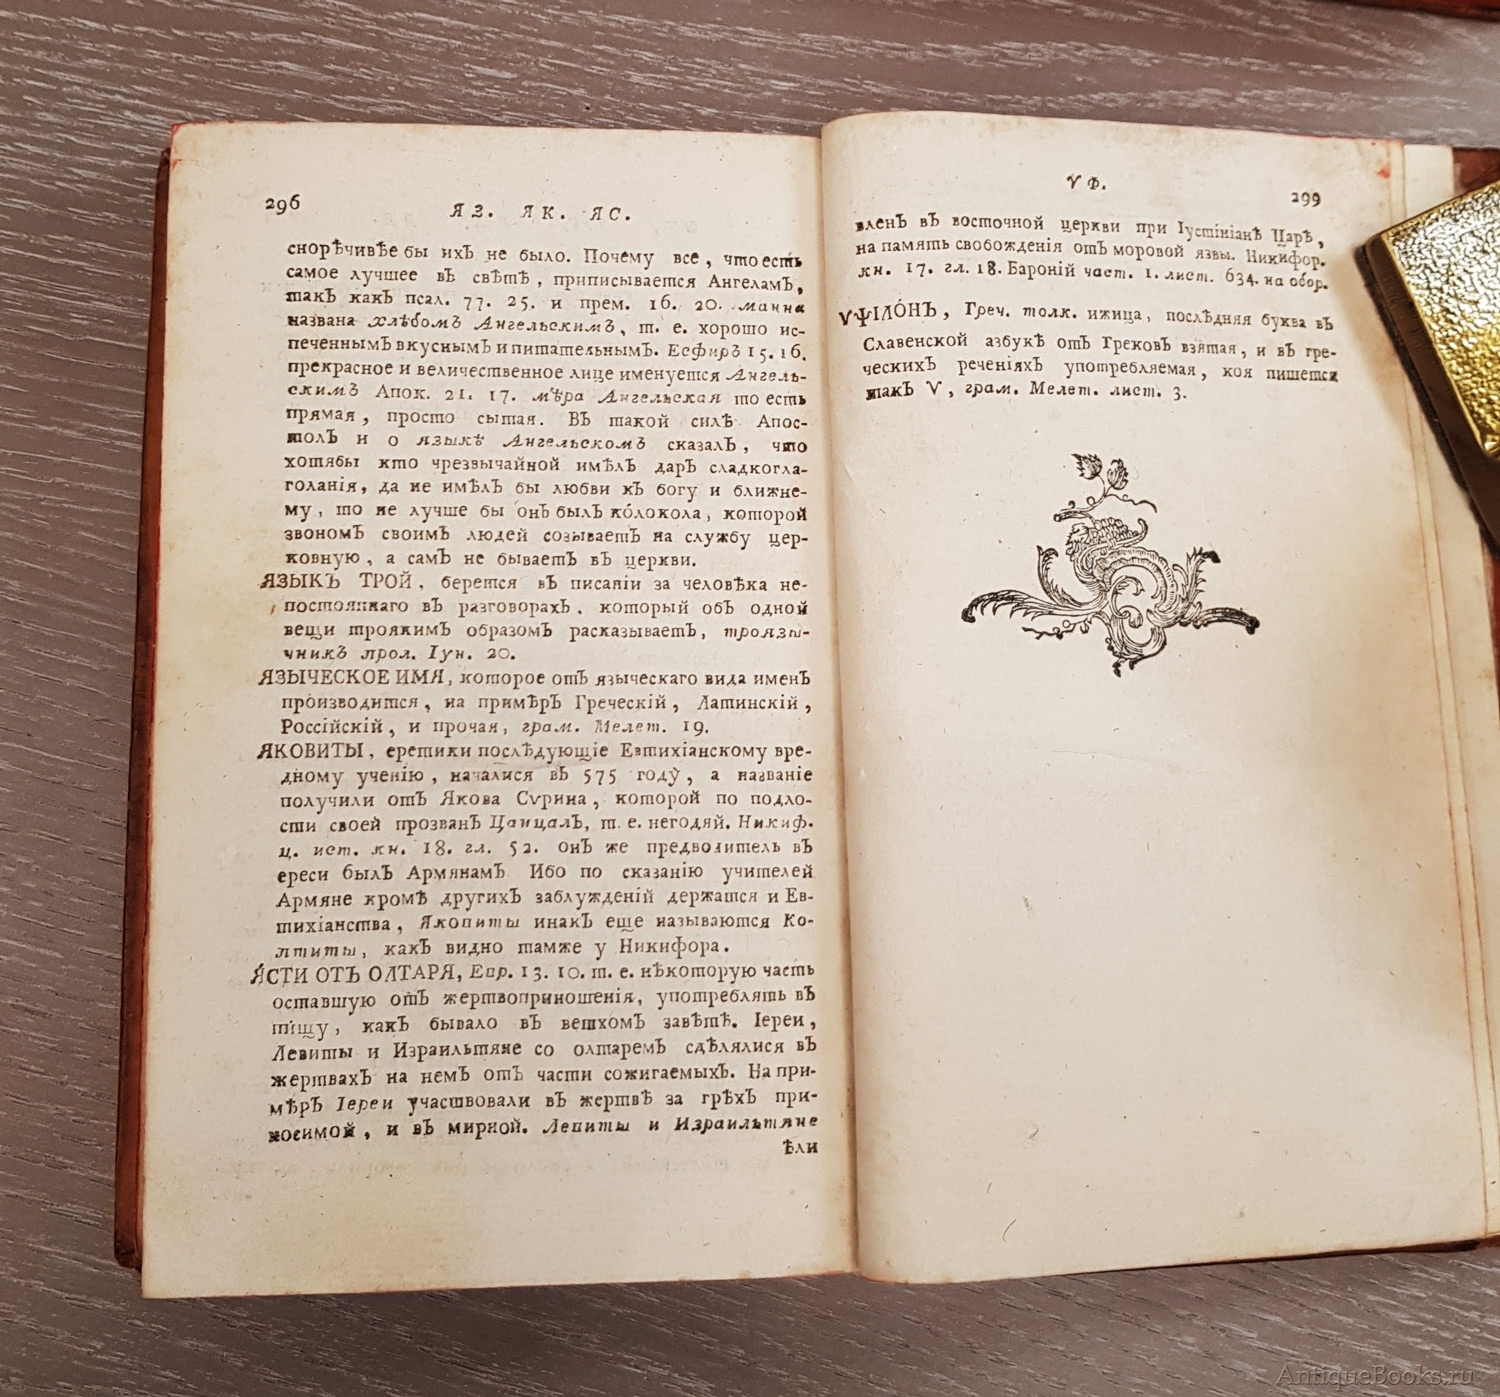 296
ЯЗ. ЯК. ЯС.
снорѣчивѣе бы ихЪ не было. Почему все, что есть
самое лучшее вЪ свѣтѣ, приписывается АнгеламЪ,
такЪ какЪ псал. 77. 25. и прем. 16. 20. манна
названа хлѣбомЪ АнгельскимЪ, т. е. хорошо ис-
печеннымЪ вкуснымЪ и питательнымЪ. ЕсѳирЪ 15. 16.
прекрасное и величественное лице именуется Ангель-
скимЪ Апок. 21. 17. мѣра Ангельская то есть
прямая, просто сытая. ВЪ такой силѣ Апос-
толЪ и о языкѣ АнгельскомЪ сказалЪ, что
хотябы кто чрезвычайной имѣлЪ дарЪ сладкогла-
голанія, да не имѣлЪ бы любви кЪ богу и ближне-
му, то не лучше бы онЪ былЪ колокола, которой
звономЪ своимЪ людей созываетЪ на службу цер-
ковную, а самЪ не бываетЪ вЪ церкви.
ЯЗЫКЪ ТРОЙ, берется вЪ писаніи за человѣка не-
постояннаго вЪ разговорахЪ, который обЪ одной
вещи троякимЪ образомЪ расказываетЪ, троязы-
чникЪ прол. Іун. 20.
ЯЗЫЧЕСКОЕ ИМЯ, которое отЪ языческаго вида именЪ
производится, на примѣрЪ Греческій, Латинскій,
Россійскій, и прочая, грам. Мелет. 19.
ЯКОВИТЫ, еретики послѣдующіе Евтихіанскому вре-
дному ученію, началися вЪ 575 году, а названіе
получили отЪ Якова Сѵрина, которой по подло-
сти своей прозванЪ ЦанцалЪ, т. е. негодяй. Никиф.
ц. ист. кн. 18. гл. 52. онЪ же предводитель вЪ
ереси былЪ АрмянамЪ. Ибо по сказанію учителей
Армяне кромѣ другихЪ заблужденій держатся и Ев-
тихіанства, Яковиты инакЪ еще называются Ко-
птиты, какЪ видно тамже у Никифора.
ЯСТИ ОТЪ ОЛТАРЯ, Евр. 13. 10. т. е. нѣкоторую часть
оставшую отЪ жертвоприношенія, употреблять вЪ
пищу, какЪ бывало вЪ ветхомЪ завѣтѣ. Іереи,
Левиты и Израильтяне со олтаремЪ сдѣлялися вЪ
жертвахЪ на немЪ отЪ части сожигаемыхЪ. На при-
мѣрЪ Іереи участвовали вЪ жертвѣ за грѣхЪ при-
носимой, и вЪ мирной. Левиты и Израильтяне
ѣли
ѴФ.
299
вленЪ вЪ восточной церкви при Іустініанѣ Царѣ,
на память свобожденія отЪ моровой язвы. Никифор.
кн. 17. гл. 18. Бароній част. 1. лист. 634. на обор.
ѴѰІЛО́НЪ, Греч. толк. ижица, послѣдняя буква вЪ
Славенской азбукѣ отЪ ГрековЪ взятая, и вЪ гре-
ческихЪ реченіяхЪ употребляемая, коя пишется
такЪ Ѵ, грам. Мелет. лист. 3.
AntiqueBooks.ru